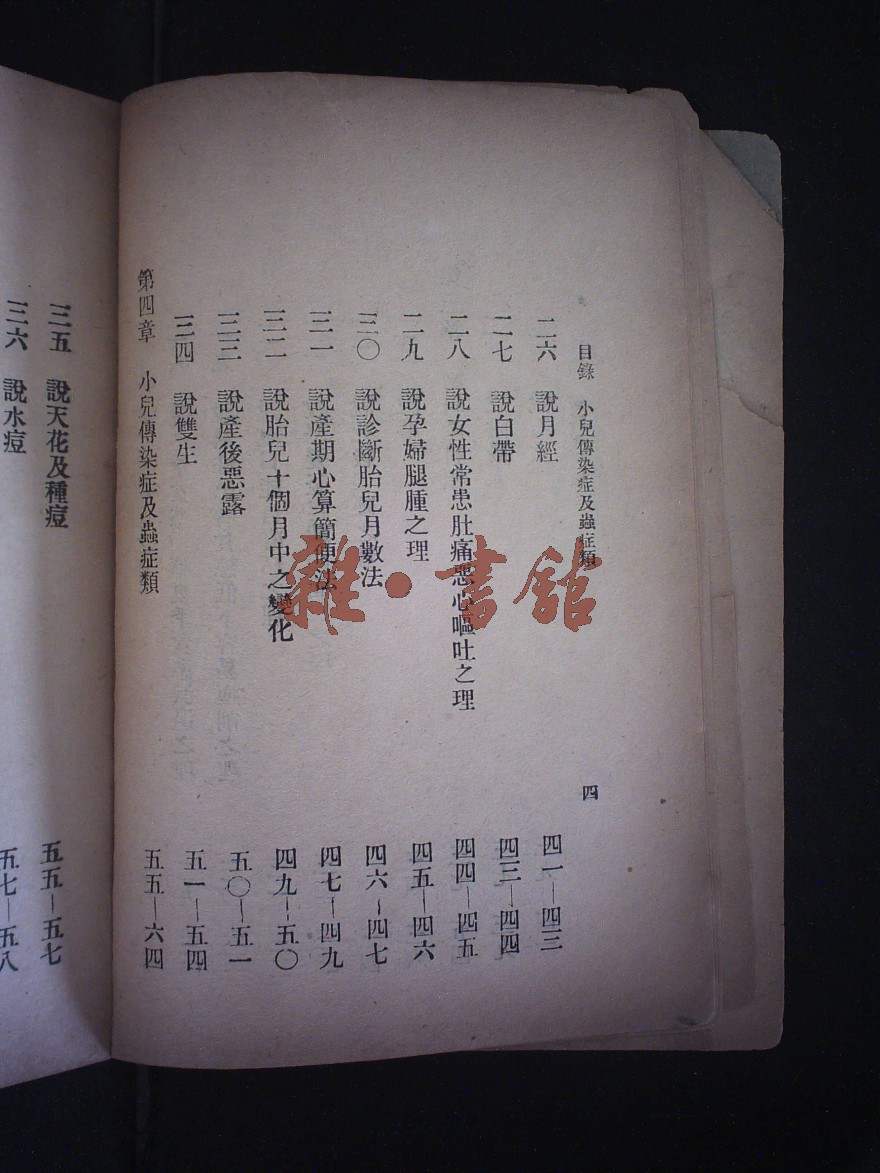 目錄　小兒傳染症及蟲症類　四
二六　說月經　四一—四三
二七　說白帶　四三—四四
二八　說女性常患肚痛惡心嘔吐之理　四四—四五
二九　說孕婦腿腫之理　四五—四六
三〇　說診斷胎兒月數法　四六—四七
三一　說產期心算簡便法　四七—四九
三二　說胎兒十個月中之變化　四九—五〇
三三　說產後惡露　五〇—五一
三四　說雙生　五一—五四
第四章　小兒傳染症及蟲症類　五五—六四
三五　說天花及種痘　五五—五七
三六　說水痘　五七—五八
雜·書館